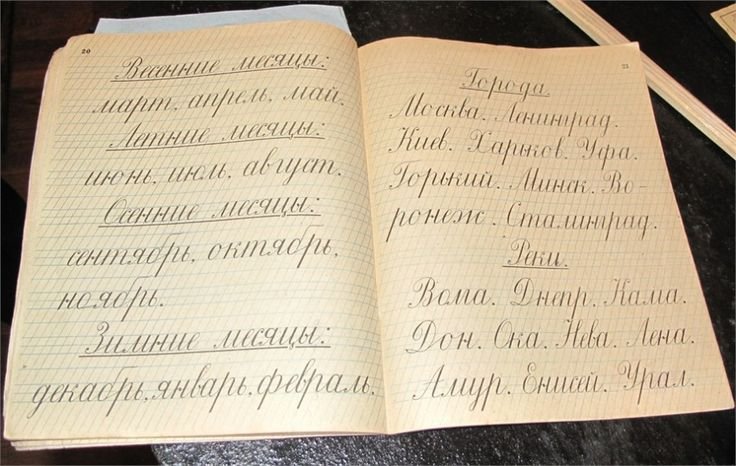 20
Весенние месяцы:
март, апрель, май.
Летние месяцы:
июнь, июль, август.
Осенние месяцы:
сентябрь, октябрь,
ноябрь.
Зимние месяцы:
декабрь, январь, февраль.
21
Города.
Москва. Ленинград.
Киев. Харьков. Уфа.
Горький. Минск. Во-
ронеж. Сталинград.
Реки.
Волга. Днепр. Кама.
Дон. Ока. Нева. Лена.
Амур. Енисей. Урал.